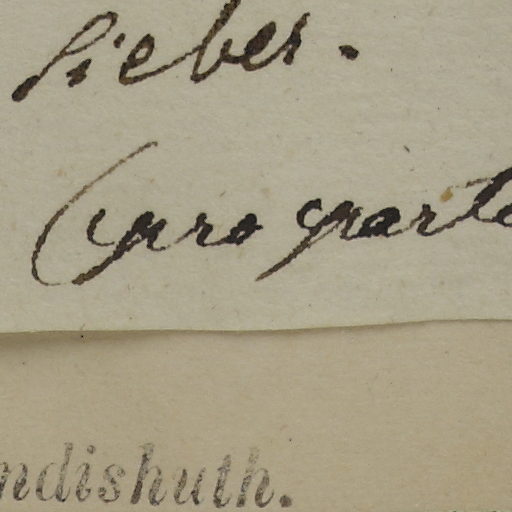 Sieber.
(pro parte
ndishuth.